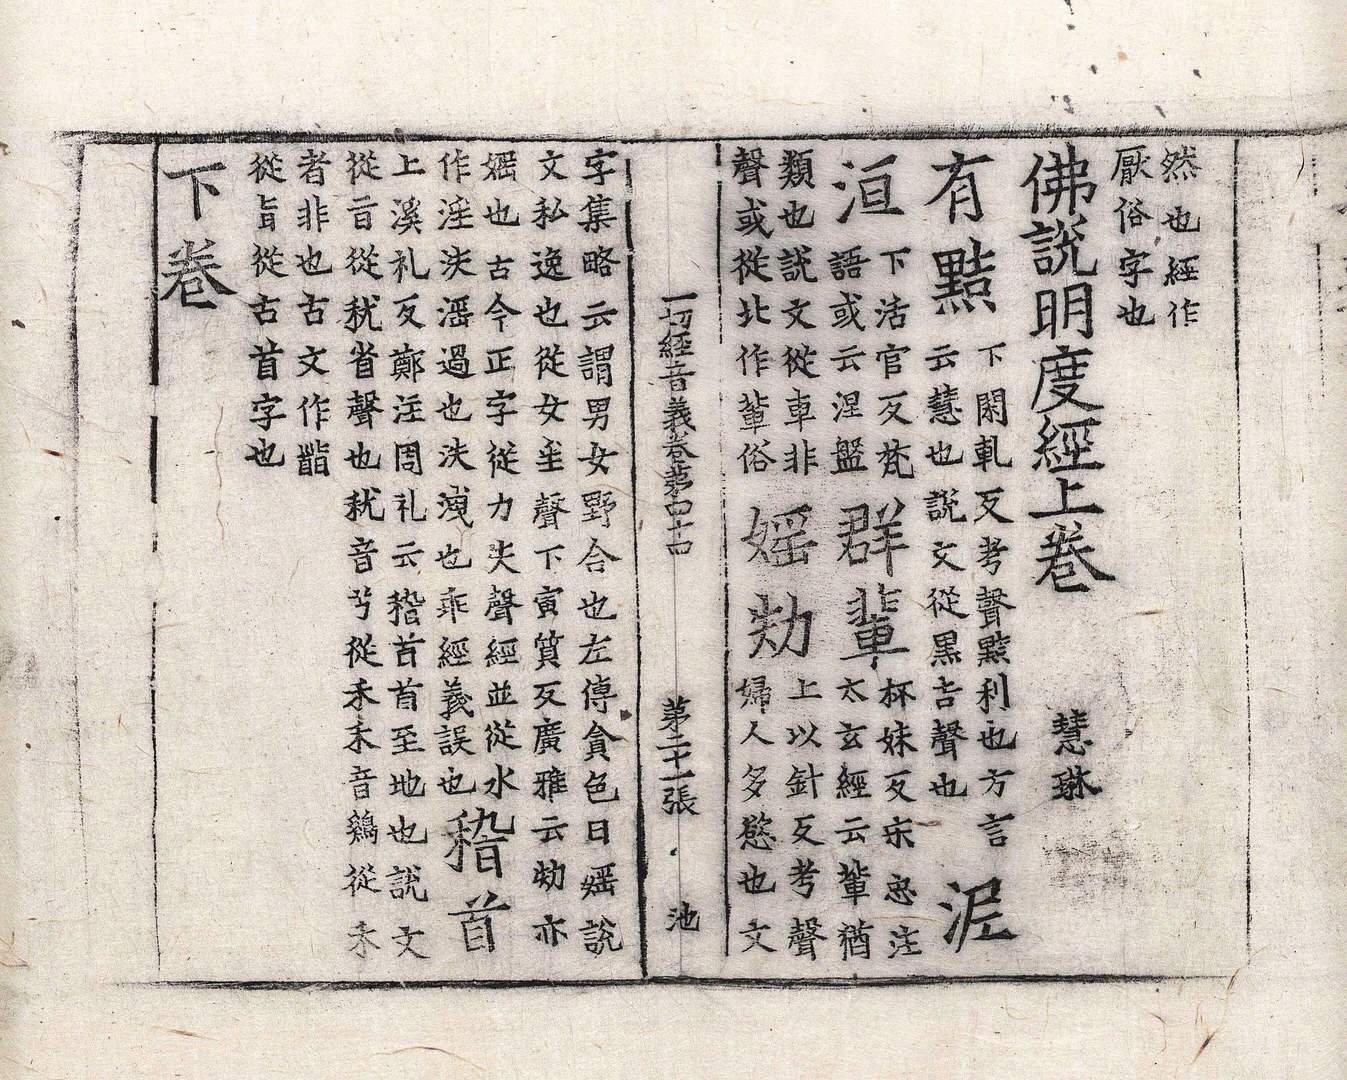 然也經作
厭俗字也
佛說明度經上卷 慧琳
有黠 下閑軋反考聲黠利也方言
云慧也說文從黑吉聲也 泥
洹 下活官反梵
語或云涅盤 群輩 杯妹反宋忠注
太玄經云輩猶
類也說文從車非
聲或從北作輩俗 婬㛍 上以針反考聲
婦人多慾也文
一切經音義卷苐四十四 第二十一張 池
字集略云謂男女野合也左傳貪色曰婬說
文私逸也從女㸒聲下寅質反廣雅云劮亦
婬也古今正字從力失聲經並從水
作淫泆滛過也泆洩也乖經義誤也 䭫首
上溪礼反鄭注周礼云䭫首首至地也說文
從旨從䅈省聲也䅈音兮從禾禾音鷄從禾
者非也古文作䭫
從旨從古首字也
下卷